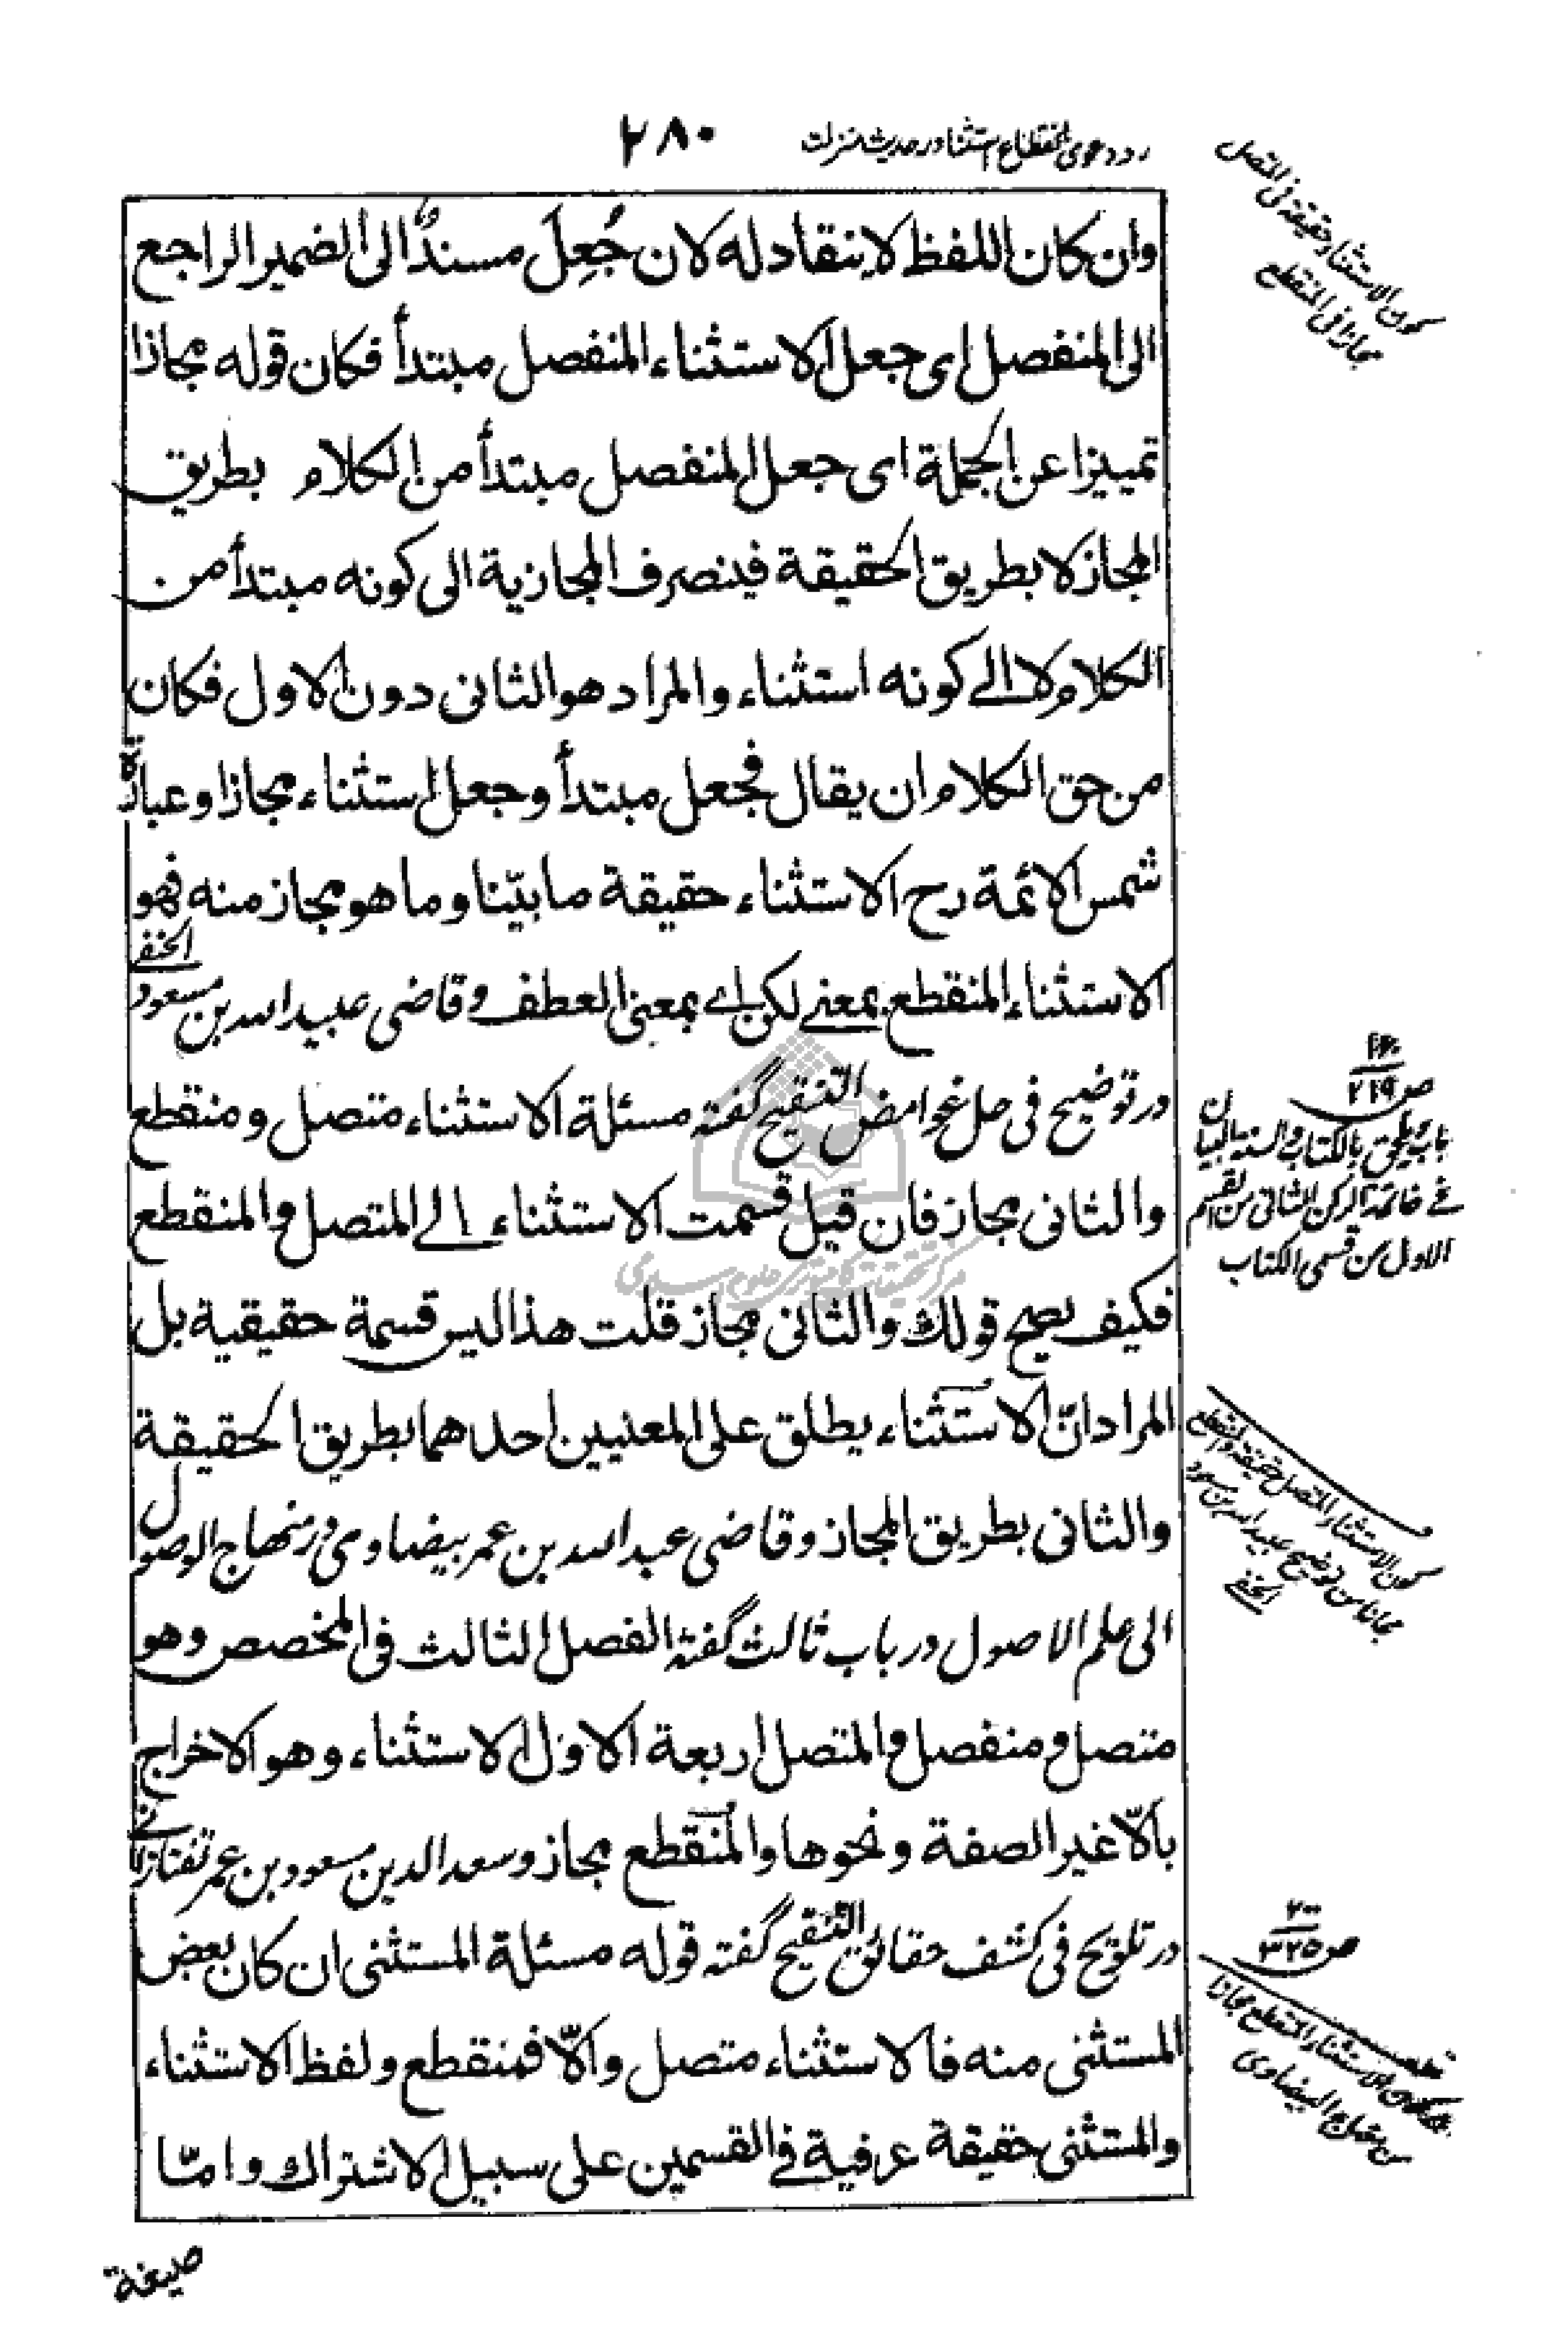 رد دعوی انقطاع استثنا در حدیث منزلت
۲۸۰
کون الاستثناء حقیقة فی المتصل
مجازا فی المنقطع
وان کان اللفظ لا ینقاد له لان جُعِلَ مسندٌ الی الضمیر الراجع
الی المنفصل ای جعل الاستثناء المنفصل مبتدأ فکان قوله مجازا
تمییزا عن الجملة ای جعل المنفصل مبتدأ من الکلام بطریق
المجاز لا بطریق الحقیقة فینصرف المجازیة الی کونه مبتدأ من
الکلام لا الے کونه استثناء والمراد هو الثانی دون الاول فکان
من حق الکلام ان یقال فجعل مبتدأ وجعل استثناء مجازا وعبارة
شمس الائمة رح الاستثناء حقیقة ما بیّنا وما هو مجاز منه فهو
الاستثناء المنقطع بمعنے لکن اے بمعنی العطف وقاضی عبید الله بن مسعود الحنفے
در توضیح فی حل غوامض التنقیح گفته مسئلة الاستثناء متصل ومنقطع
والثانی مجاز فان قیل قسمت الاستثناء الے المتصل والمنقطع
فکیف یصح قولك والثانی مجاز قلت هذا لیس قسمة حقیقیة بل
المراد انّ الاستثناء یطلق علی المعنیین احدهما بطریق الحقیقة
والثانی بطریق المجاز وقاضی عبد الله بن عمر بیضاوی در منهاج الوصول
الی علم الاصول در باب ثالث گفته الفصل الثالث فی المخصص وهو
متصل ومنفصل والمتصل اربعة الاول الاستثناء وهو الاخراج
بالّا غیر الصفة ونحوها والمنقطع مجاز وسعد الدین مسعود بن عمر تفتازانے
در تلویح فی کشف حقائق التنقیح گفته قوله مسئلة المستثنی ان کان بعض
المستثنی منه فالاستثناء متصل والّا فمنقطع ولفظ الاستثناء
والمستثنی حقیقة عرفیة فے القسمین علی سبیل الاشتراك وامّا
صیغة
ص ۲۱۹
باب یلحق بالکتاب والسنة البیان
فے خاتمة الرکن الثانی من القسم
الاول من قسمی الکتاب
کون الاستثناء المتصل حقیقة والمنقطع
مجازا من توضیح عبید الله بن مسعود
الحنفے
ص ۳۲۵
الاستثناء المنقطع مجازا
من منهاج البیضاوی